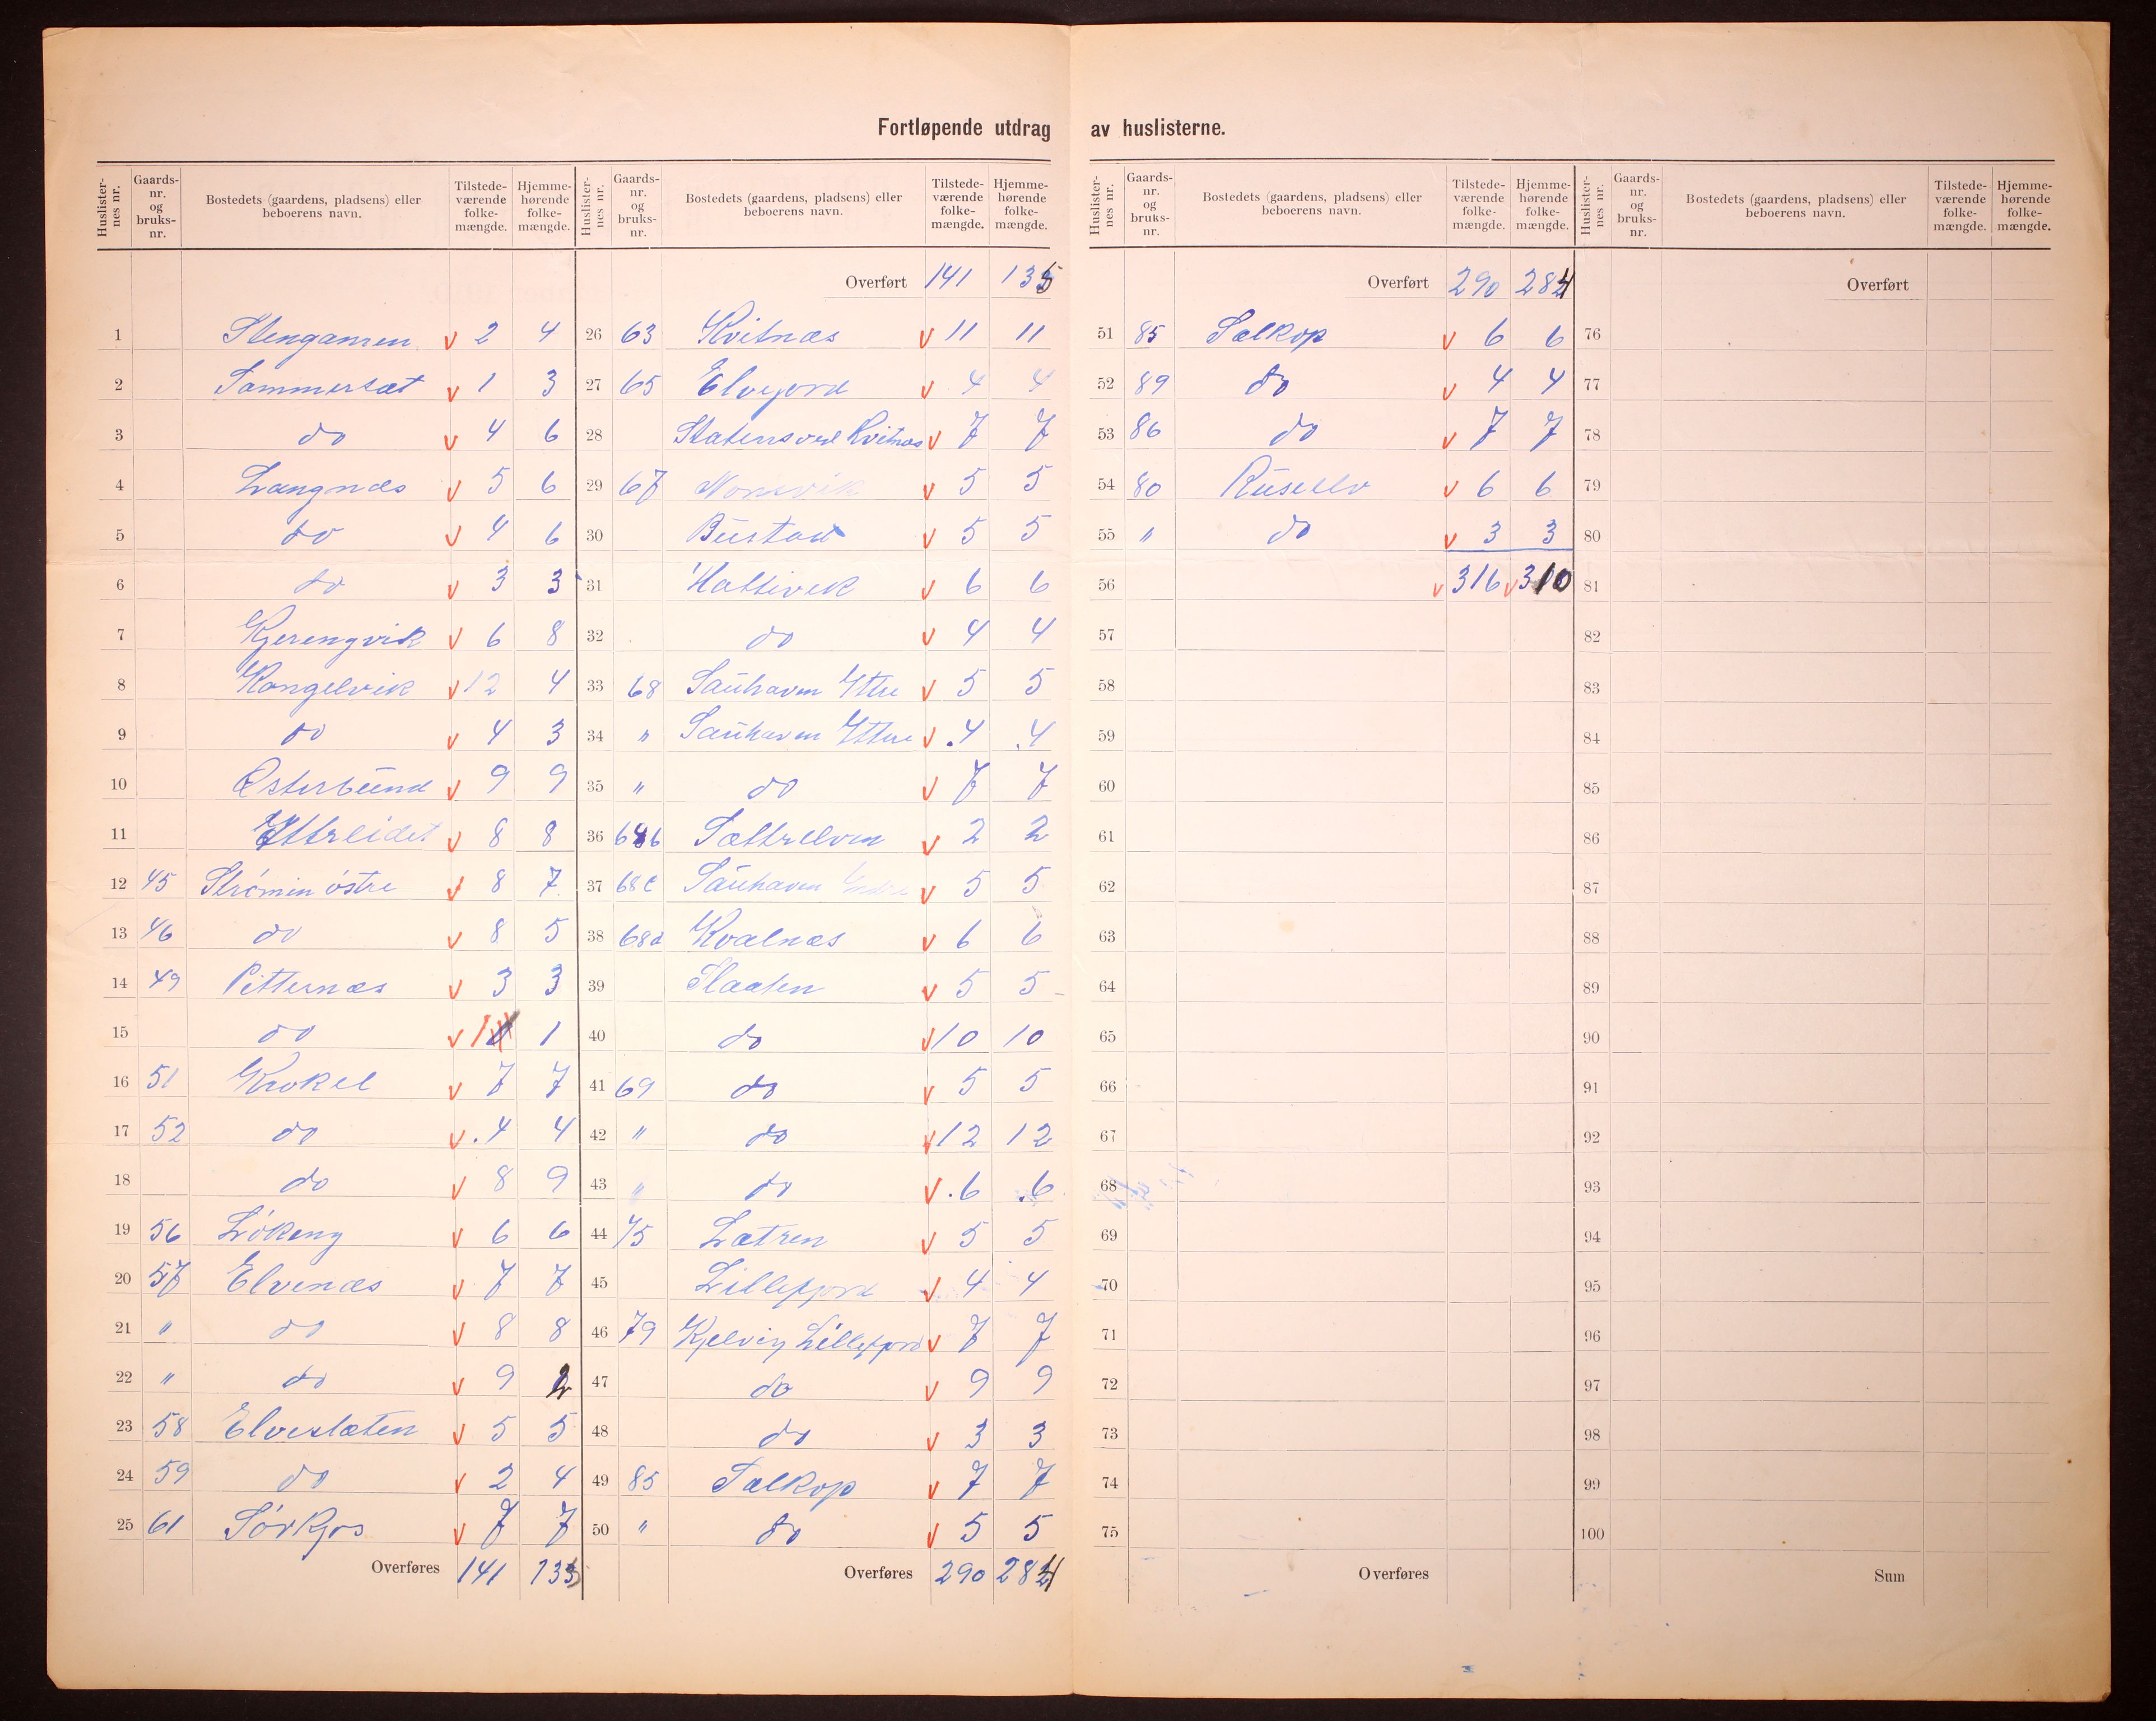 Fortløpende utdrag av huslisterne.
Huslisternes nr. Gaards-nr. og bruks-nr. Bostedets (gaardens, pladsens) eller beboerens navn. Tilstede-værende folke-mængde. Hjemme-hørende folke-mængde.
1 Stengamen v 2 4
2 Sommersæt v 1 3
3 do v 4 6
4 Langnæs v 5 6
5 do v 4 6
6 do v 3 3
7 Kjerengvik v 6 8
8 Kongelvik v 12 4
9 do v 4 3
10 Østerbund v 9 9
11 Ytterleidet v 8 8
12 45 Strömmen östre v 8 7
13 46 do v 8 5
14 49 Pitternæs v 3 3
15 do v 1 1
16 51 Krokel v 7 7
17 52 do v . 4 4
18 do v 8 9
19 56 Lökeng v 6 6
20 57 Elvenæs v 7 7
21 " do v 8 8
22 " do v 9 2
23 58 Elveslaten v 5 5
24 59 do v 2 4
25 61 Sörkjos v 7 7
Overføres 141 135
Huslisternes nr. Gaards-nr. og bruks-nr. Bostedets (gaardens, pladsens) eller beboerens navn. Tilstede-værende folke-mængde. Hjemme-hørende folke-mængde.
Overført 141 135
26 63 Kvitnæs v 11 11
27 65 Elvejord v 4 4
28 Statens ved Kvitnæs v 7 7
29 67 v 5 5
30 Bustad v 5 5
31 Hattivik v 6 6
32 do v 4 4
33 68 Sauhavn Yttre v 5 5
34 " Sauhavn Yttre v . 4 . 4
35 " do v 7 7
36 68b Sættrelven v 2 2
37 68c Sauhavn Indre v 5 5
38 68d Kvalnæs v 6 6
39 Slaaten v 5 5
40 do v 10 10
41 69 do v 5 5
42 " do v 12 12
43 " do v . 6 . 6
44 75 Lætren v 5 5
45 Lillefjord v 4 4
46 79 Kjelvig Lillefjord v 7 7
47 do v 9 9
48 do v 3 3
49 85 Salkop v 7 7
50 " do v 5 5
Overføres 290 284
Huslisternes nr. Gaards-nr. og bruks-nr. Bostedets (gaardens, pladsens) eller beboerens navn. Tilstede-værende folke-mængde. Hjemme-hørende folke-mængde.
Overført 290 284
51 85 Salkop v 6 6
52 89 do v 4 4
53 86 do v 7 7
54 80 Ruselv v 6 6
55 " do v 3 3
56 v 316 v 310
57
58
59
60
61
62
63
64
65
66
67
68
69
70
71
72
73
74
75
Overføres
Huslisternes nr. Gaards-nr. og bruks-nr. Bostedets (gaardens, pladsens) eller beboerens navn. Tilstede-værende folke-mængde. Hjemme-hørende folke-mængde.
Overført
76
77
78
79
80
81
82
83
84
85
86
87
88
89
90
91
92
93
94
95
96
97
98
99
100
Sum